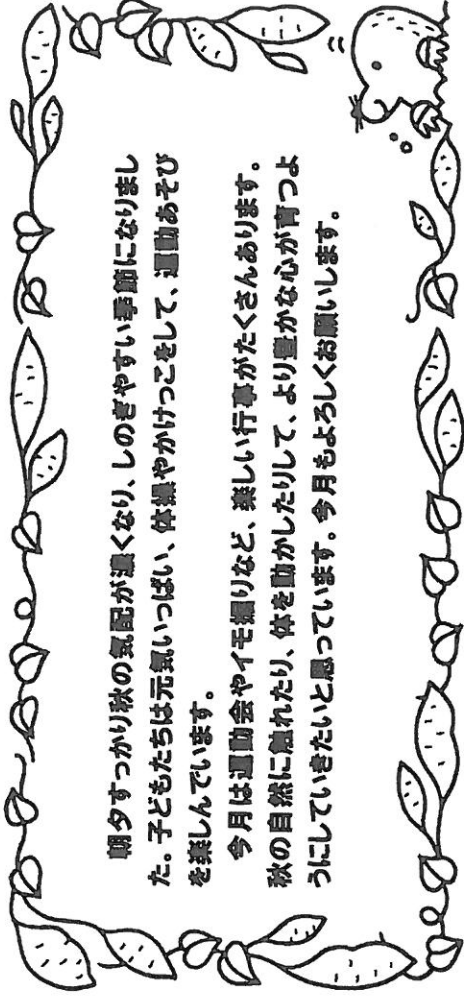 朝夕すっかり秋の気配が濃くなり、しのぎやすい季節になりまし
た。子どもたちは元気いっぱい、体操やかけっこをして、運動あそび
を楽しんでいます。
今月は運動会やイモ掘りなど、楽しい行事がたくさんあります。
秋の自然に触れたり、体を動かしたりして、より豊かな心が育つよ
うにしていきたいと思っています。今月もよろしくお願いします。